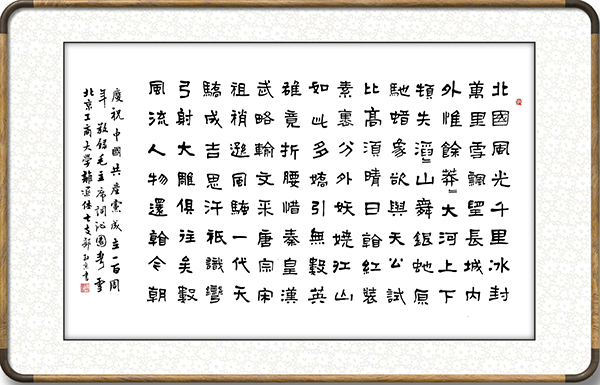 北國風光千里冰封
萬里雪飄望長城内
外惟餘莽〻大河上下
頓失滔〻山舞銀蛇原
馳蜡象欲與天公試
比高須晴日看紅裝
素裹分外妖嬈江山
如此多嬌引無數英
雄竟折腰惜秦皇漢
武略輸文采唐宗宋
祖稍遜風騷一代天
驕成吉思汗衹識彎
弓射大雕俱往矣數
風流人物還看今朝
慶祝中國共產黨成立一百周
年敬録毛主席詞沁園春雪
北京工商大学離退休七支部 书